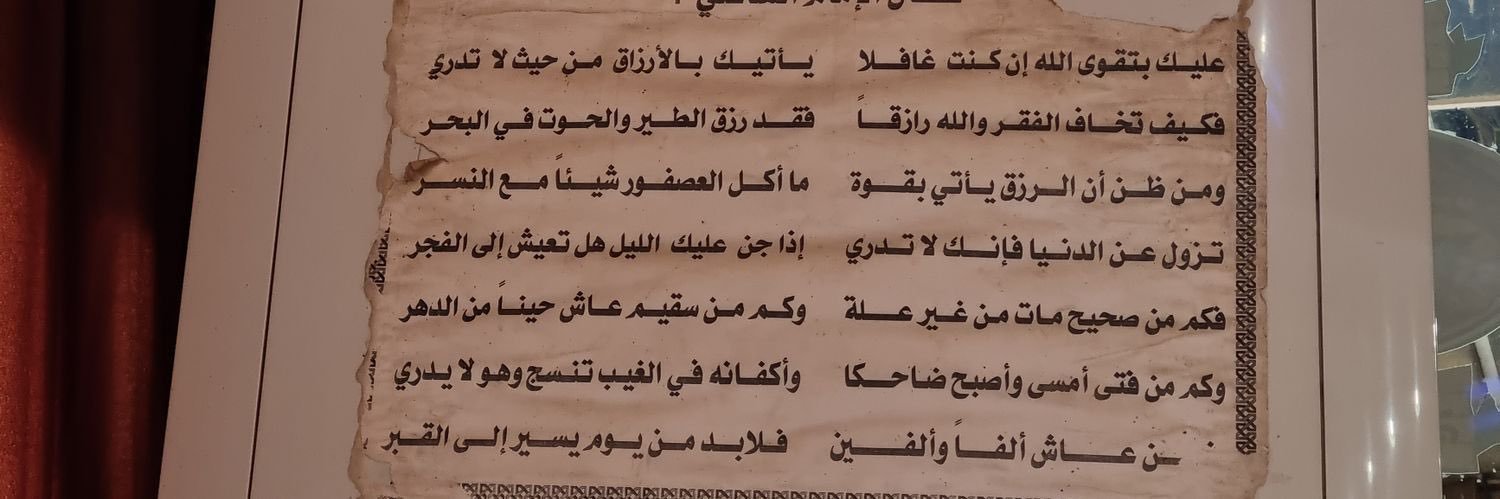 عليك بتقوى الله إن كنت غافلا يأتيك بالأرزاق من حيث لا تدري
فكيف تخاف الفقر والله رازقاً فقد رزق الطير والحوت في البحر
ومن ظن أن الرزق يأتي بقوة ما أكل العصفور شيئاً مع النسر
تزول عن الدنيا فإنك لا تدري إذا جن عليك الليل هل تعيش إلى الفجر
فكم من صحيح مات من غير علة وكم من سقيم عاش حيناً من الدهر
وكم من فتى أمسى وأصبح ضاحكا وأكفانه في الغيب تنسج وهو لا يدري
عاش ألفاً وألفين فلابد من يوم يسير إلى القبر